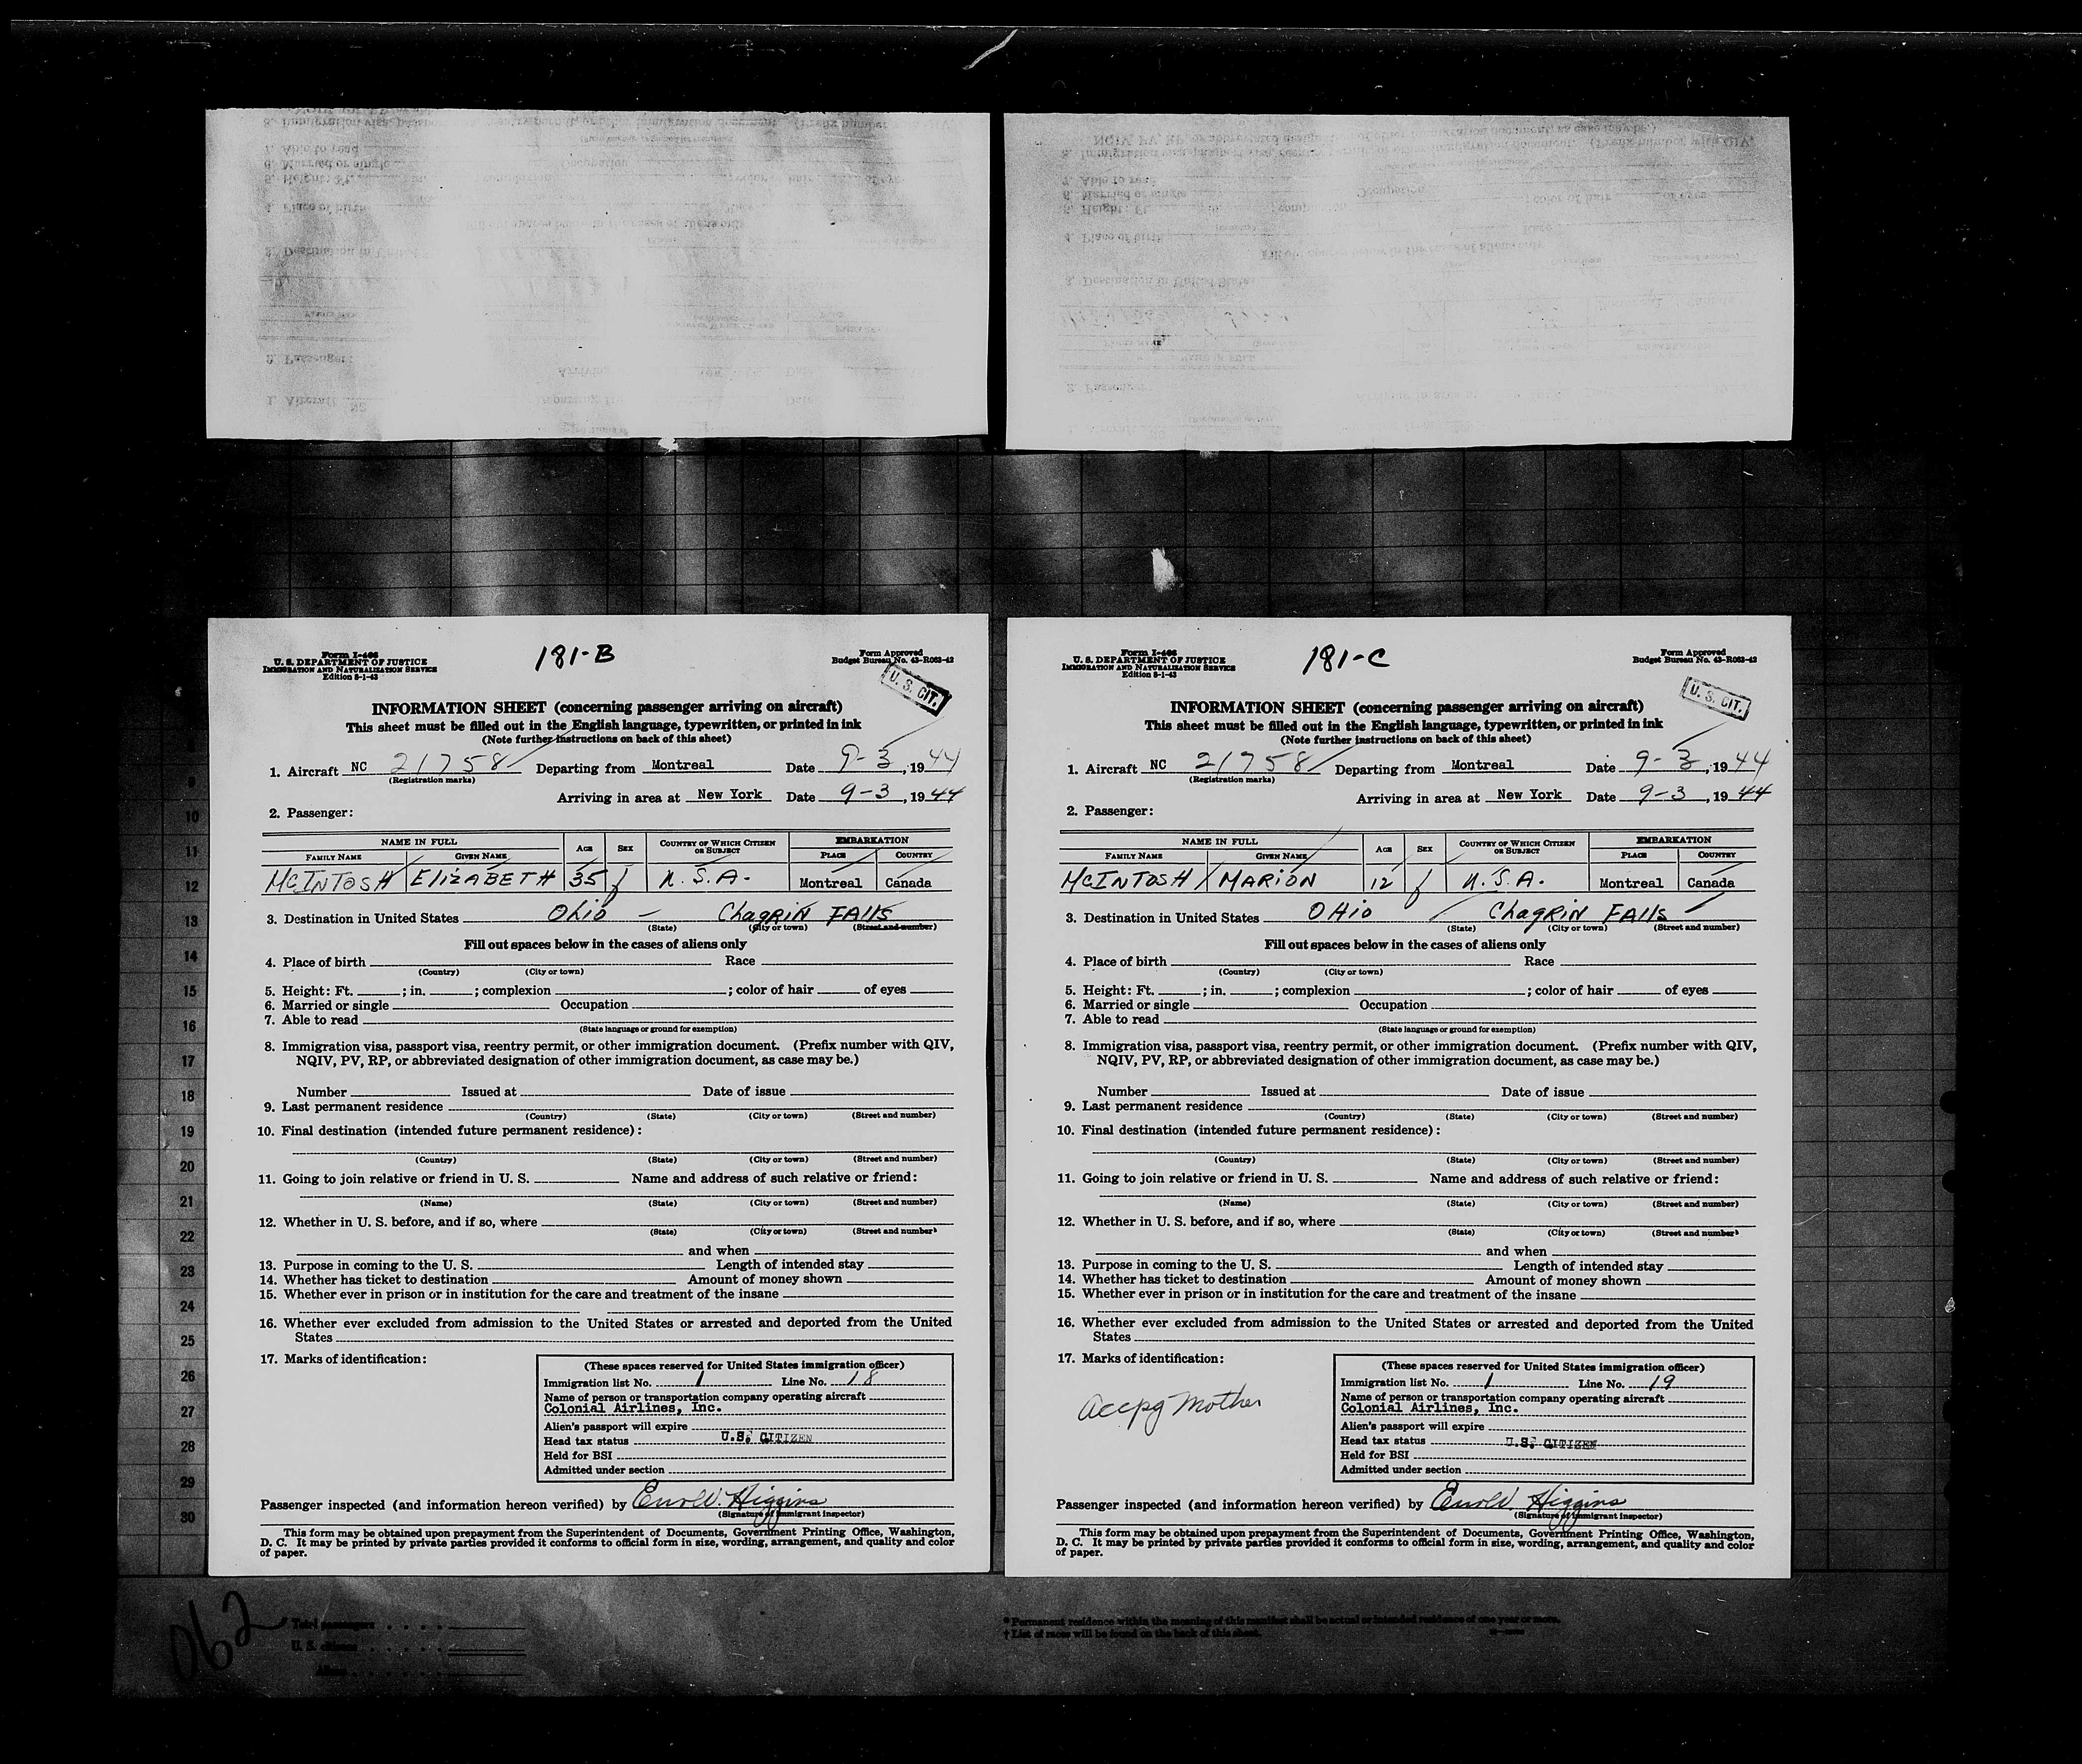 181-B
Form I-466
U. S. DEPARTMENT OF JUSTICE
IMMIGRATION AND NATURALIZATION SERVICE
Edition 8-1-43
Form Approved
Budget Bureau No. 43-R063-42
U. S. CIT.
INFORMATION SHEET (concerning passenger arriving on aircraft)
This sheet must be filled out in the English language, typewritten, or printed in ink
(Note further instructions on back of this sheet)
1. Aircraft NC 21758 Departing from Montreal Date 9-3, 1944
(Registration marks)
Arriving in area at New York Date 9-3, 1944
2. Passenger:
NAME IN FULL AGE SEX COUNTRY OF WHICH CITIZEN OR SUBJECT EMBARKATION
FAMILY NAME GIVEN NAME PLACE COUNTRY
MCINTOSH ELIZABETH 35 f U.S.A. Montreal Canada
3. Destination in United States Ohio - Chagrin Falls
(State) (City or town) (Street and number)
Fill out spaces below in the cases of aliens only
4. Place of birth Race
(Country) (City or town)
5. Height: Ft. ; in. ; complexion ; color of hair of eyes
6. Married or single Occupation
7. Able to read
(State language or ground for exemption)
8. Immigration visa, passport visa, reentry permit, or other immigration document. (Prefix number with QIV,
NQIV, PV, RP, or abbreviated designation of other immigration document, as case may be.)
Number Issued at Date of issue
9. Last permanent residence
(Country) (State) (City or town) (Street and number)
10. Final destination (intended future permanent residence):
(Country) (State) (City or town) (Street and number)
11. Going to join relative or friend in U. S. Name and address of such relative or friend:
(Name) (State) (City or town) (Street and number)
12. Whether in U. S. before, and if so, where
(State) (City or town) (Street and number)
and when
13. Purpose in coming to the U. S. Length of intended stay
14. Whether has ticket to destination Amount of money shown
15. Whether ever in prison or in institution for the care and treatment of the insane
16. Whether ever excluded from admission to the United States or arrested and deported from the United
States
17. Marks of identification:
(These spaces reserved for United States immigration officer)
Immigration list No. 1 Line No. 18
Name of person or transportation company operating aircraft
Colonial Airlines, Inc.
Alien's passport will expire
Head tax status U.S. CITIZEN
Held for BSI
Admitted under section
Passenger inspected (and information hereon verified) by Higgins
(Signature of immigrant inspector)
This form may be obtained upon prepayment from the Superintendent of Documents, Government Printing Office, Washington,
D. C. It may be printed by private parties provided it conforms to official form in size, wording, arrangement, and quality and color
of paper.
181-C
Form I-466
U. S. DEPARTMENT OF JUSTICE
IMMIGRATION AND NATURALIZATION SERVICE
Edition 8-1-43
Form Approved
Budget Bureau No. 43-R063-42
U. S. CIT.
INFORMATION SHEET (concerning passenger arriving on aircraft)
This sheet must be filled out in the English language, typewritten, or printed in ink
(Note further instructions on back of this sheet)
1. Aircraft NC 21758 Departing from Montreal Date 9-3, 1944
(Registration marks)
Arriving in area at New York Date 9-3, 1944
2. Passenger:
NAME IN FULL AGE SEX COUNTRY OF WHICH CITIZEN OR SUBJECT EMBARKATION
FAMILY NAME GIVEN NAME PLACE COUNTRY
MCINTOSH MARION 12 f U.S.A. Montreal Canada
3. Destination in United States OHio Chagrin Falls
(State) (City or town) (Street and number)
Fill out spaces below in the cases of aliens only
4. Place of birth Race
(Country) (City or town)
5. Height: Ft. ; in. ; complexion ; color of hair of eyes
6. Married or single Occupation
7. Able to read
(State language or ground for exemption)
8. Immigration visa, passport visa, reentry permit, or other immigration document. (Prefix number with QIV,
NQIV, PV, RP, or abbreviated designation of other immigration document, as case may be.)
Number Issued at Date of issue
9. Last permanent residence
(Country) (State) (City or town) (Street and number)
10. Final destination (intended future permanent residence):
(Country) (State) (City or town) (Street and number)
11. Going to join relative or friend in U. S. Name and address of such relative or friend:
(Name) (State) (City or town) (Street and number)
12. Whether in U. S. before, and if so, where
(State) (City or town) (Street and number)
and when
13. Purpose in coming to the U. S. Length of intended stay
14. Whether has ticket to destination Amount of money shown
15. Whether ever in prison or in institution for the care and treatment of the insane
16. Whether ever excluded from admission to the United States or arrested and deported from the United
States
17. Marks of identification:
Accpg Mother
(These spaces reserved for United States immigration officer)
Immigration list No. 1 Line No. 19
Name of person or transportation company operating aircraft
Colonial Airlines, Inc.
Alien's passport will expire
Head tax status U.S. CITIZEN
Held for BSI
Admitted under section
Passenger inspected (and information hereon verified) by Higgins
(Signature of immigrant inspector)
This form may be obtained upon prepayment from the Superintendent of Documents, Government Printing Office, Washington,
D. C. It may be printed by private parties provided it conforms to official form in size, wording, arrangement, and quality and color
of paper.
9
10
11
12
13
14
15
16
17
18
19
20
21
22
23
24
25
26
27
28
29
30
062
Total passengers
U. S. citizens
Aliens
* Permanent residence within the meaning of this manifest shall be actual or intended residence of one year or more.
† List of races will be found on the back of this sheet.